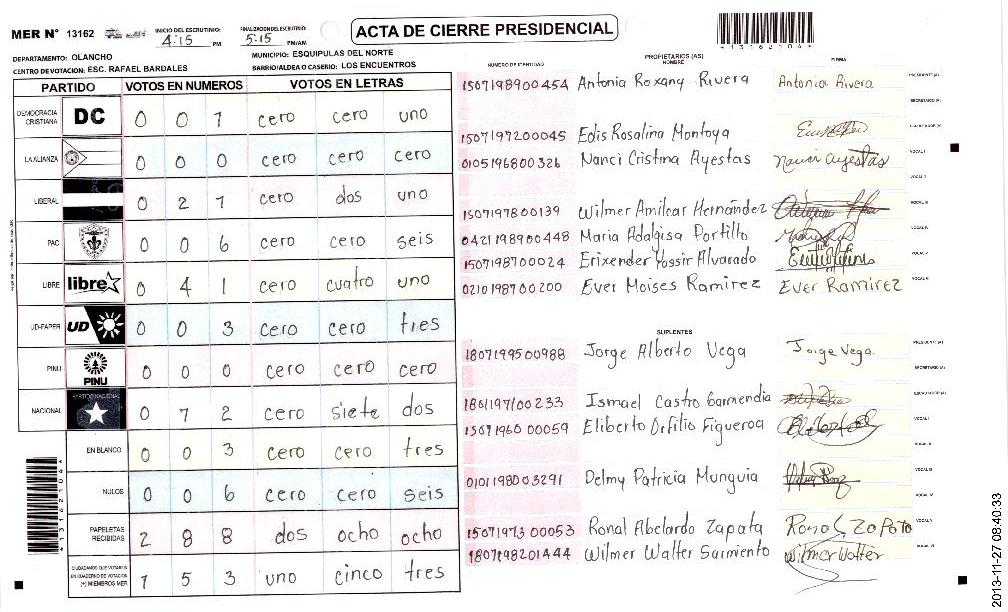 MER N° 13162
INICIO DEL ESCRUTINIO: 4:15 PM
FINALIZACION DEL ESCRUTINIO: 5:15 PM/AM
ACTA DE CIERRE PRESIDENCIAL
*13162104*
DEPARTAMENTO: OLANCHO
MUNICIPIO: ESQUIPULAS DEL NORTE
CENTRO DE VOTACION: ESC. RAFAEL BARDALES
BARRIO/ALDEA O CASERIO: LOS ENCUENTROS
PARTIDO VOTOS EN NUMEROS VOTOS EN LETRAS
DEMOCRACIA CRISTIANA DC 0 0 1 cero cero uno
LA ALIANZA 0 0 0 cero cero cero
LIBERAL 0 2 1 cero dos uno
PAC 0 0 6 cero cero seis
LIBRE libre 0 4 1 cero cuatro uno
UD-FAPER UD 0 0 3 cero cero tres
PINU PINU 0 0 0 cero cero cero
NACIONAL PARTIDO NACIONAL 0 7 2 cero siete dos
EN BLANCO 0 0 3 cero cero tres
NULOS 0 0 6 cero cero seis
PAPELETAS RECIBIDAS 2 8 8 dos ocho ocho
CIUDADANOS QUE VOTARON EN CUADERNO DE VOTACION (+) MIEMBROS MER 1 5 3 uno cinco tres
*13162104*
PROPIETARIOS (AS)
NUMERO DE IDENTIDAD NOMBRE FIRMA
1507198900454 Antonia Roxany Rivera Antonia Rivera PRESIDENTE (A)
SECRETARIO (A)
1507197200045 Edis Rosalina Montoya ESCRUTADOR (A)
0105196800326 Nanci Cristina Ayestas Nanci Ayestas VOCAL I
VOCAL II
1507197800139 Wilmer Amilcar Hernández VOCAL III
0421198900448 Maria Adalgisa Portillo VOCAL IV
1507198700024 Erixender Yossir Alvarado VOCAL V
0210198700200 Ever Moises Ramirez Ever Ramirez VOCAL VI
SUPLENTES
1807199500988 Jorge Alberto Vega Jorge Vega. PRESIDENTE (A)
SECRETARIO (A)
1801197100233 Ismael Castro Garmendia ESCRUTADOR (A)
1507196000059 Eliberto Orfilio Figueroa VOCAL I
VOCAL II
0101198003291 Delmy Patricia Munguia VOCAL III
VOCAL IV
1507197300053 Ronal Abelardo Zapata Ronal Zapata VOCAL V
1807198201444 Wilmer Walter Sarmiento Wilmer Walter VOCAL VI
2013-11-27 08:40:33